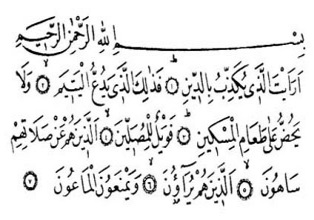 بِسْمِ اللهِ الرَّحْمٰنِ الرَّحِيْمِ
اَرَاَيْتَ الَّذِيْ يُكَذِّبُ بِالدِّيْنِ ۝١ فَذٰلِكَ الَّذِيْ يَدُعُّ الْيَتِيْمَ ۝٢ وَلَا
يَحُضُّ عَلٰى طَعَامِ الْمِسْكِيْنِ ۝٣ فَوَيْلٌ لِلْمُصَلِّيْنَ ۝٤ اَلَّذِيْنَ هُمْ عَنْ صَلَاتِهِمْ
سَاهُوْنَ ۝٥ اَلَّذِيْنَ هُمْ يُرَآؤُنَ ۝٦ وَيَمْنَعُوْنَ الْمَاعُوْنَ ۝٧